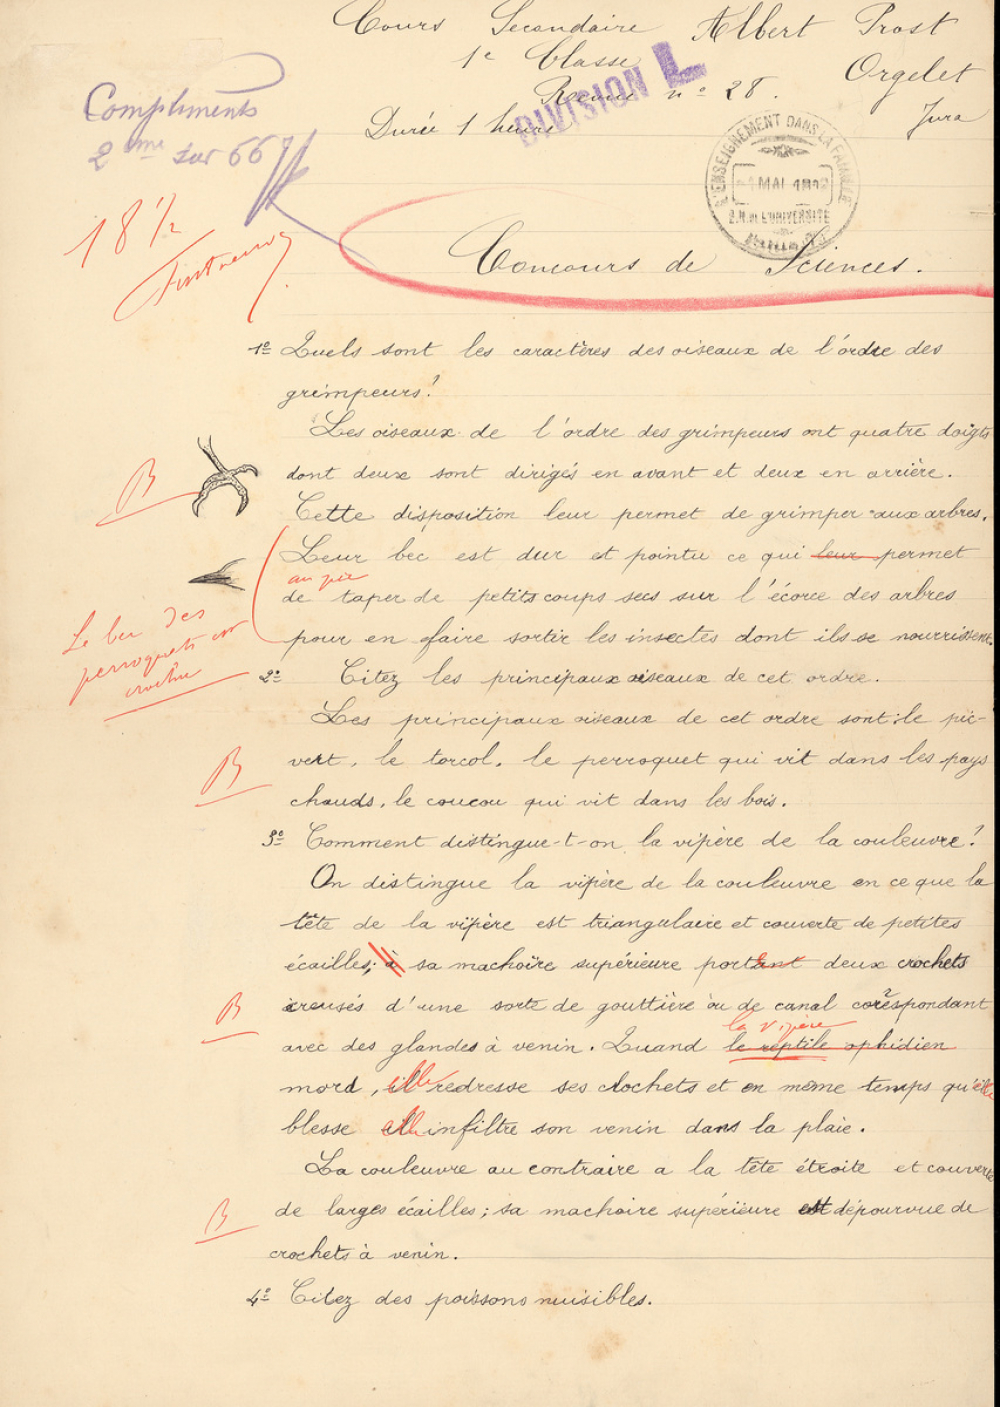 Cours Secondaire Albert Prost
1e Classe Orgelet
DIVISION L
Revue n° 28. Jura
Durée 1 heure
Compliments
2me sur 667
18 1/2
L'ENSEIGNEMENT DANS LA FAMILLE
MAI
B.H. de L'UNIVERSITÉ
Concours de Sciences.
1° Quels sont les caractères des oiseaux de l'ordre des
grimpeurs?
Les oiseaux de l'ordre des grimpeurs ont quatre doigts
B
dont deux sont dirigés en avant et deux en arrière.
Cette disposition leur permet de grimper aux arbres.
Leur bec est dur et pointu ce qui leur permet
au pic
de taper de petits coups secs sur l'écorce des arbres
Le bec des
perroquets est
crochu
pour en faire sortir les insectes dont ils se nourrissent.
2° Citez les principaux oiseaux de cet ordre.
Les principaux oiseaux de cet ordre sont: le pic-
B
vert, le torcol, le perroquet qui vit dans les pays
chauds, le coucou qui vit dans les bois.
3° Comment distingue-t-on la vipère de la couleuvre?
On distingue la vipère de la couleuvre en ce que la
tête de la vipère est triangulaire et couverte de petites
écailles; à sa machoire supérieure portant deux crochets
B
creusés d'une sorte de gouttière ou de canal corespondant
la vipère
avec des glandes à venin. Quand le reptile ophidien
mord, elle redresse ses clochets et en même temps qu'elle
blesse elle infiltre son venin dans la plaie.
La couleuvre au contraire a la tête étroite et couverte
B
de larges écailles; sa machoire supérieure est dépourvue de
crochets à venin.
4° Citez des poissons nuisibles.